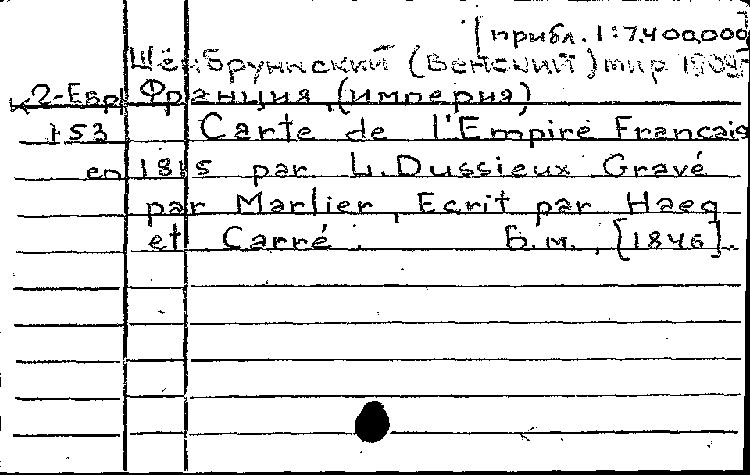 [прибл. 1:7.400.000
Шёнбруннский (Венский) мир 1809
К 2-Евр Франция (империя)
153 Carte de l'Empire Francais
en 1815 par L. Dussieux Gravé
par Marlier, Ecrit par Haeq
et Carré. Б.м., [1846].